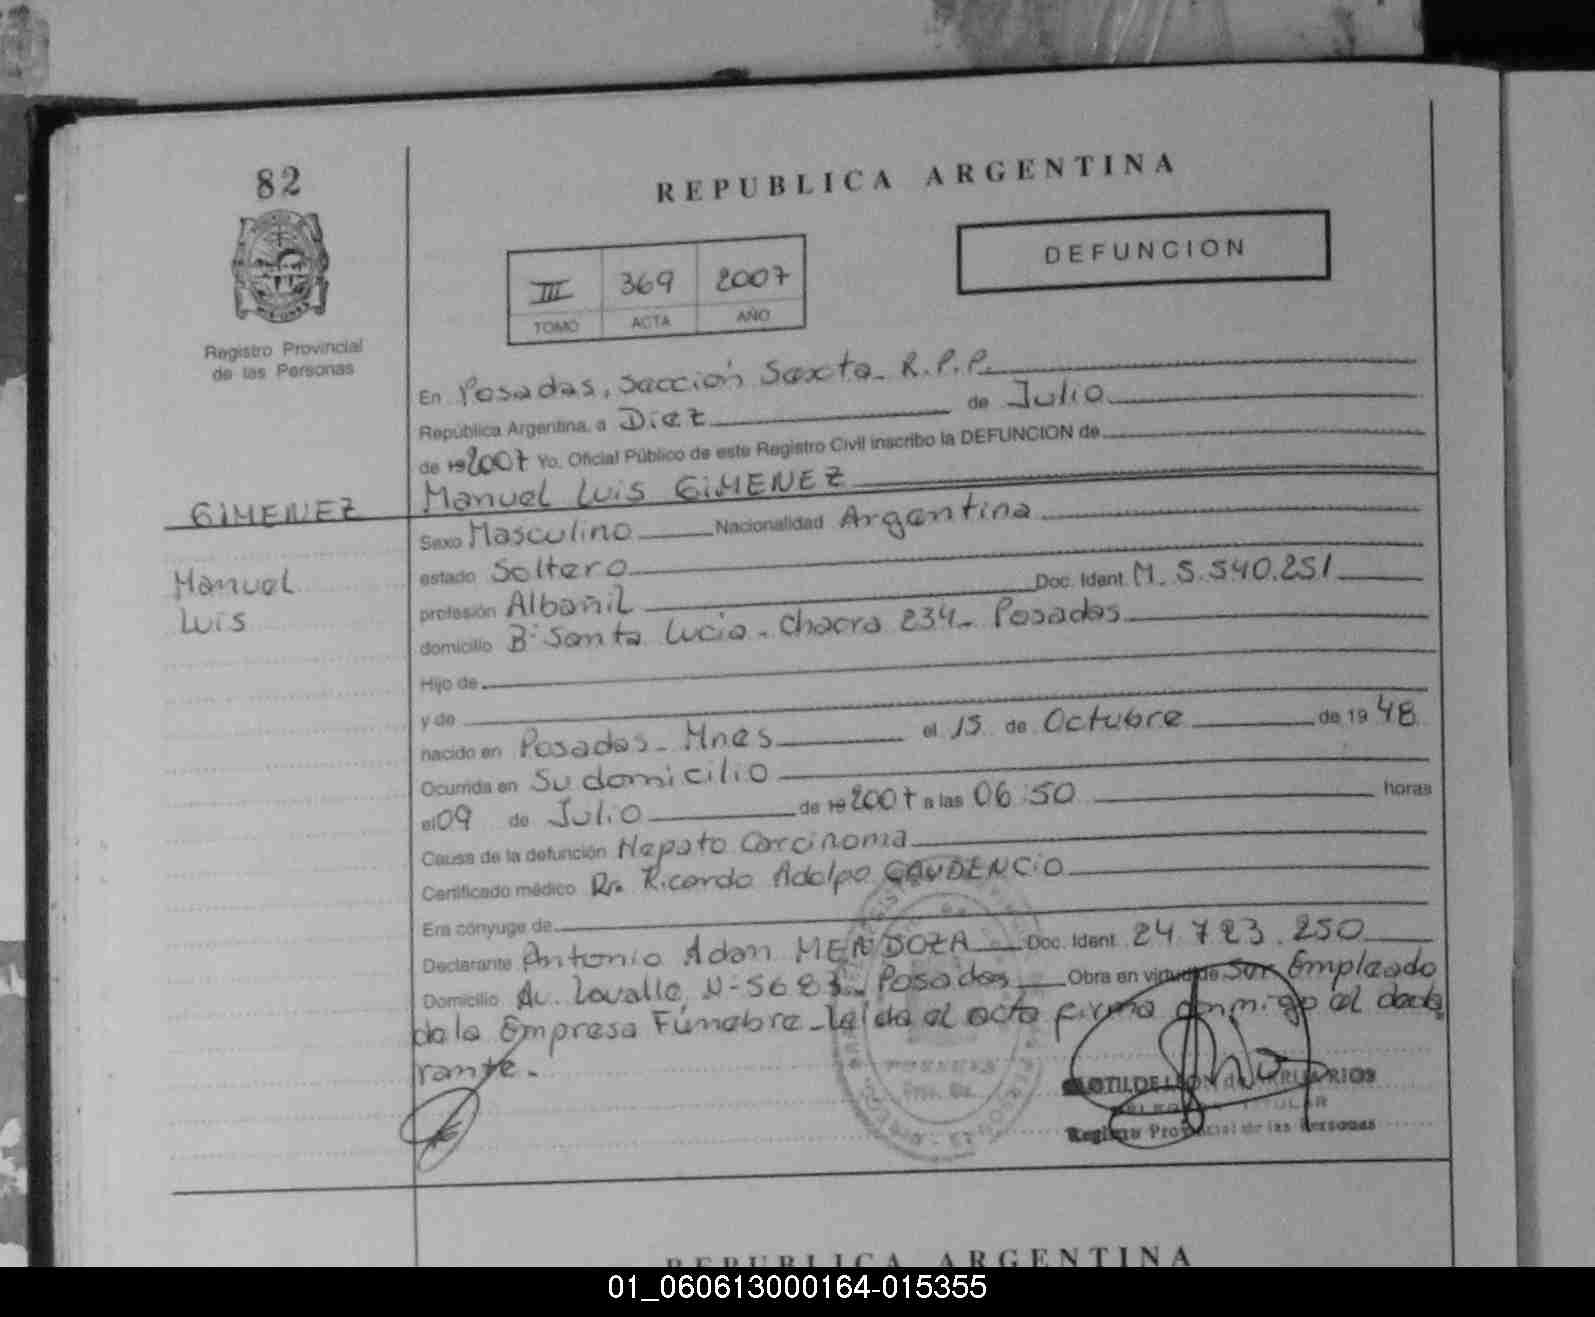 82
REPUBLICA ARGENTINA
DEFUNCION
III 369 2007
TOMO ACTA AÑO
Registro Provincial
de las Personas
En Posadas, Sección Sexta_ R.P.P.
República Argentina, a Diez de Julio
de 19 2007 Yo, Oficial Público de este Registro Civil inscribo la DEFUNCION de
GIMENEZ
Manuel
Luis
Manuel Luis GIMENEZ
Sexo Masculino Nacionalidad Argentina
estado Soltero
profesión Albañil Doc. Ident. M. 5.540.251
domicilio B° Santa Lucia - Chacra 234 - Posadas
Hijo de
y de
nacido en Posadas - Mnes el 15 de Octubre de 19 48
Ocurrida en Su domicilio
el 09 de Julio de 19 2007 a las 06:50 horas
Causa de la defunción Hepato Carcinoma
Certificado médico Dr. Ricardo Adolfo GAUDENCIO
Era cónyuge de
Declarante Antonio Adan MENDOZA Doc. Ident. 24.723.250
Domicilio Av. Lavalle N-5683 - Posadas Obra en virtud de Ser Empleado
de la Empresa Fúnebre - Leída el acta firma conmigo el decla
rante.
POSADAS
CLOTILDE LEON de RIOS
DELEGADA TITULAR
Registro Provincial de las Personas
REPUBLICA ARGENTINA
01_060613000164-015355